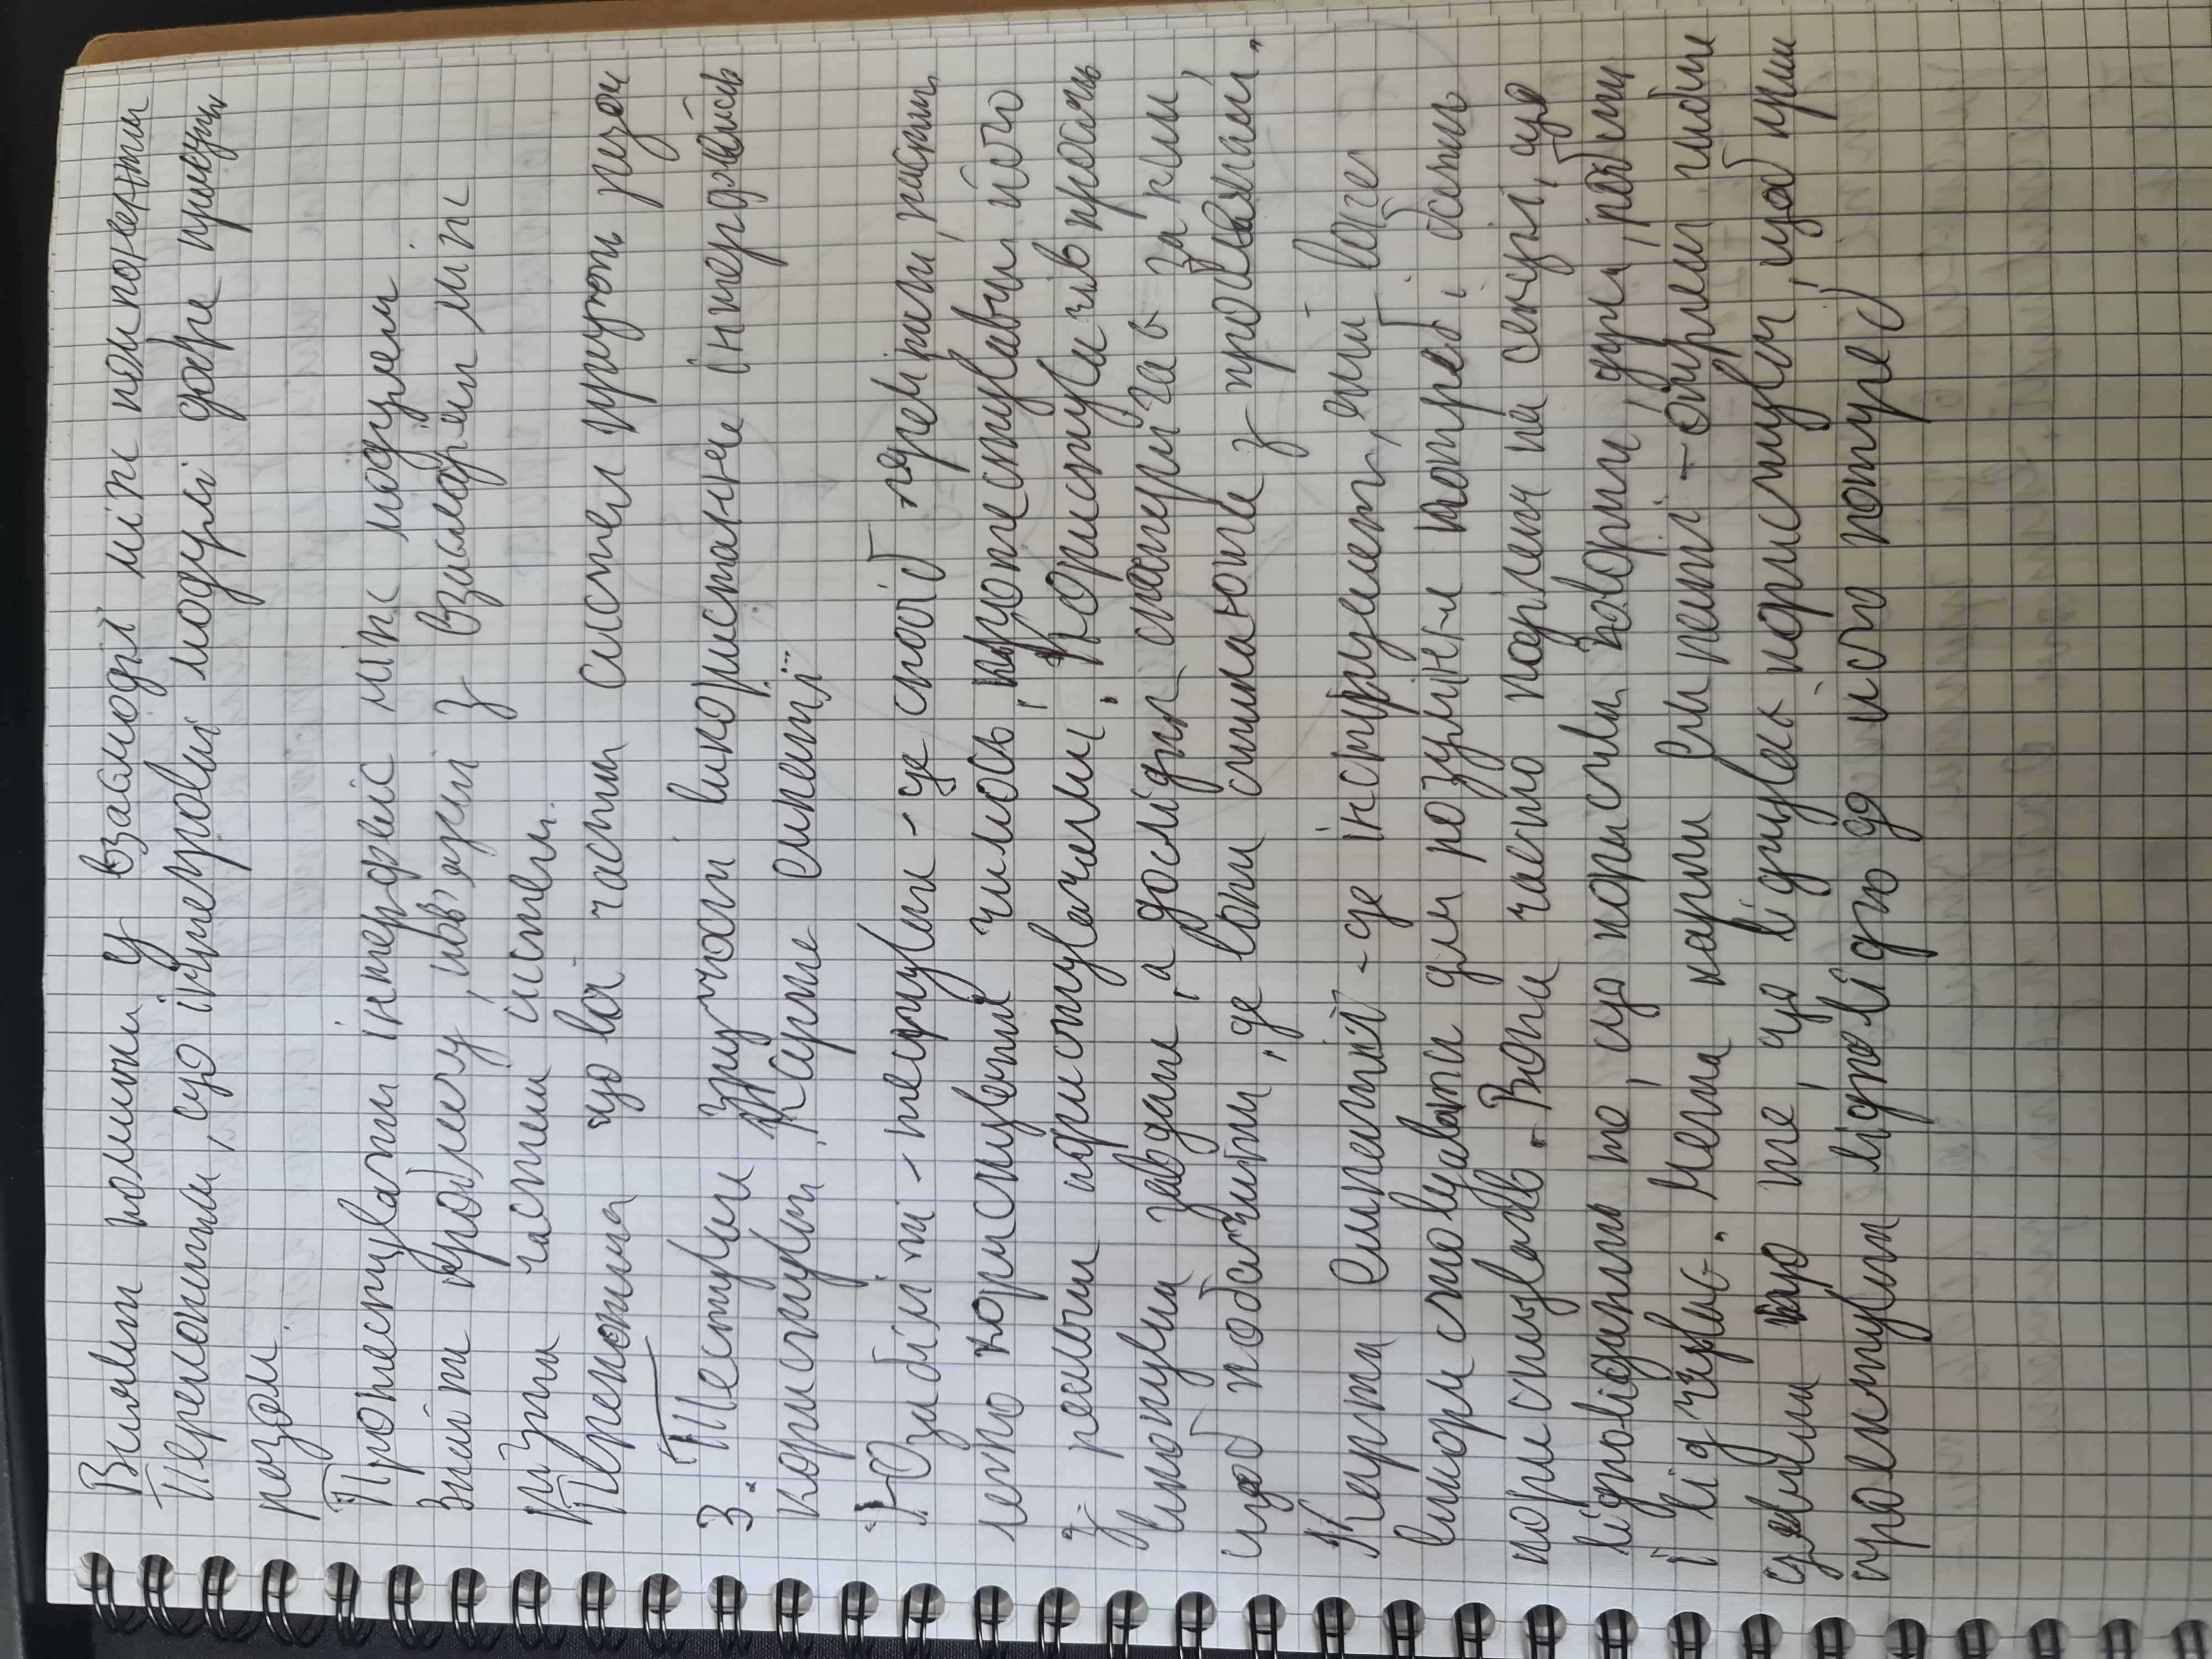 Виявит помилки у взаємодії між компонентти
Переконатися, що інтегровні модулі добре працуть
разом.
Протестувати інтерфейс між модулем
Знайти проблему, пов'язані з взаємодієй між
різни частей систем.
Переконатися що всі части систем працють разом
3. Тестуван зручності використання інтерфейсів
користувач. Карта емпатії
Юзабіліті - тестуван - це спосіб перевірити, наскіл
легко користуватися чимось, протестувавши його
з реальни користувачами. Користувачів просять
виконувати завдання, а дослідник спостерігає за ним,
щоб побачити, де вони стикаються з проблемами.
Карта емпатії - це інструмент, який
використовувати для розуміння потреб і бажань
користувачів. Вони часто поділені на секції, що
відповідають то, що користувач говорить, дума, робить
і відчуває. Мета карти емпатії - отримат глибше
уявлення про те, що відчуває користувач, щоб краще
проектувати відповідно до його потреб